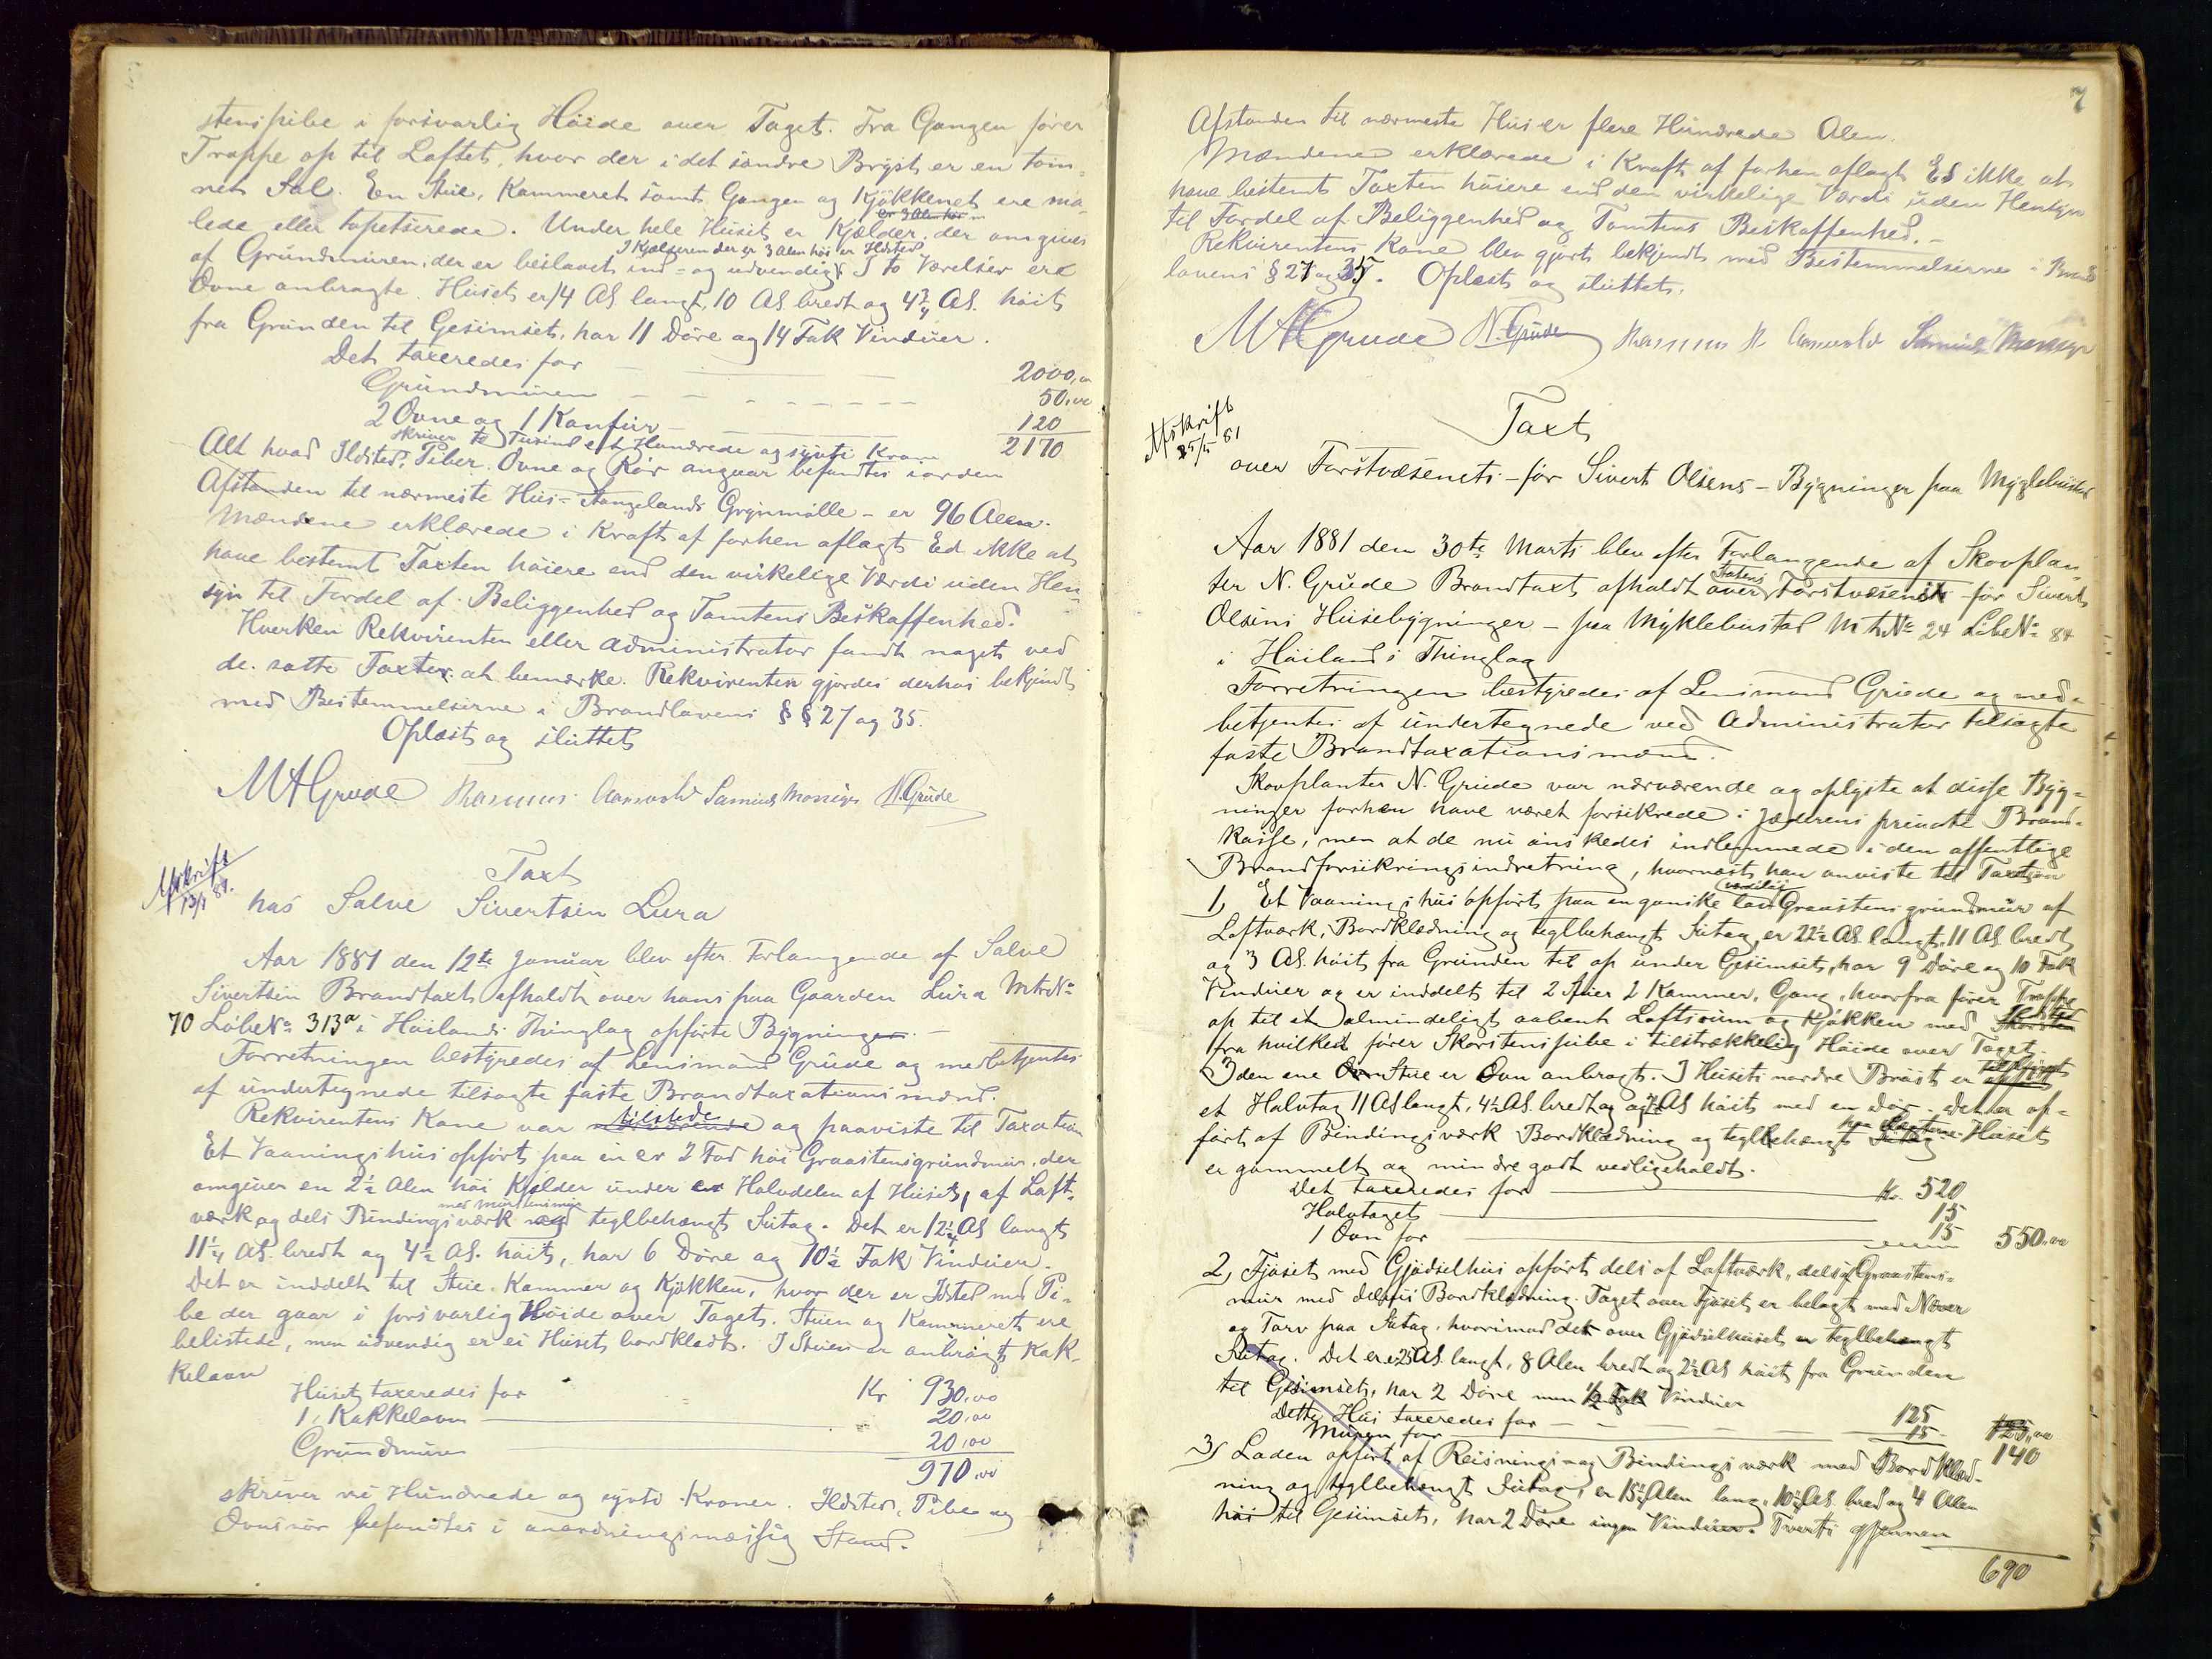 stenspibe i forsvarlig Höide over Taget. Fra Gangen förer
Trappe op til Loftet, hvor der i det söndre Bryst er en töm¬
ret Sal. En Stue, Kammeret samt Gangen og Kjökkenet ere ma¬
lede eller tapetserede. Under hele Huset er Kjelder, der omgives
er 3 Alen höi
I Kjelderen der er 3 Alen höi er Ildsted
af Grundmuren, der er beslaaet ind- og udvendig I to Værelser ere
Ovne anbragte. Huset er 14 Al. langt, 10 Al. bredt og 4¾ Al. höit
fra Grunden til Gesimset, har 11 Döre og 14 Fak Vinduer.
Det taxeredes for 2000,00
Grundmuren 50,00
2 Ovne og 1 Komfur 120
skriver to Tusind et Hundrede og sytti Kroner 2170
Alt hvad Ildsted, Piber, Ovne og Rör angaar befandtes iorden
Afstanden til nærmeste Hus - Stangelands Grynmölle - er 96 Alen.
Mændene erklærede i Kraft af forhen aflagt Ed ikke at
have bestemt Taxten höiere end den virkelige Værdi uden Hen¬
syn til Fordel af Beliggenhed og Tomtens Beskaffenhed.
Hverken Rekvirenten eller Administrator fandt noget ved
de satte Taxter at bemærke. Rekvirenten gjordes derhos bekjendt
med Bestemmelserne i Brandlovens §§ 27 og 35.
Oplæst og sluttet
M A Grude Rasmus Aarsvold Samuel Monsen N. Grude
Afskrift
13/1 81.
Taxt
hos Salve Sivertsen Lura
Aar 1881 den 12te Januar blev efter Forlangende af Salve
Sivertsen Brandtaxt afholdt over hans paa Gaarden Lura Mtr No
70 Löbe No 313a i Höilands Thinglag opförte Bygninger. -
Forretningen bestyredes af Lensmand Grude og medbetjentes
af undertegnede tilsagte faste Brandtaxationsmænd.
tilstede
Rekvirentens Kone var nærværende og paaviste til Taxation
Et Vaaningshus opfört paa en er 2 Fod höi Graastensgrundmur, der
omgiver en 2½ Alen höi Kjelder under en Halvdelen af Huset, af Loft¬
værk og dels Bindingsværk med teglbehængt Sutag. Det er 12½ Al langt
11¼ Al. bredt og 4½ Al. höit, har 6 Döre og 10½ Fak Vinduer.
Det er inddelt til Stue, Kammer og Kjökken, hvor der er Ildsted med Pi¬
be der gaar i forsvarlig Höide over Taget. Stuen og Kammeret ere
belistede, men udvendig er ei Huset bordklædt. I Stuen er anbragt Kak¬
kelovn
Huset taxeredes for Kr 930,00
1 Kakkelovn 20,00
Grundmuren 20,00
970,00
skriver ni Hundrede og sytti Kroner. Ildsted, Pibe og
Ovnsrör befandtes i anordningsmæssig Stand.
7
Afstanden til nærmeste Hus er flere Hundrede Alen.
Mændene erklærede i Kraft af forhen aflagt Ed ikke at
have bestemt Taxten höiere end den virkelige Værdi uden Hensyn
til Fordel af Beliggenhed og Tomtens Beskaffenhed. -
Rekvirentens Kone blev gjort bekjendt med Bestemmelserne i Brand
lovens § 27 og 35. Oplæst og sluttet.
M A Grude N. Grude Rasmus Aarsvold Samuel Monsen
Afskrift
25/5 81
Taxt
over Forstvæsenets - för Sivert Olsens - Bygninger paa Myklebustad
Aar 1881 den 30te Marts blev efter Forlangende af Skovplan¬
ter N. Grude Brandtaxt afholdt over Statens Forstvæsenets - för Sivert
Olsens Husebygninger - paa Myklebustad Mtr No 24 Löbe No 84
i Höilands Thinglag
Forretningen bestyredes af Lensmand Grude og med¬
betjentes af undertegnede ved Administrator tilsagte
faste Brandtaxationsmænd.
Skovplanter N. Grude var nærværende og oplyste at disse Byg¬
ninger forhen have været forsikrede i Jæderens private Brand¬
kasse, men at de nu önskedes indlemmede i den offentlige
Brandforsikringsindretning, hvornæst han anviste til Taxation
1) Et Vaaningshus opfört paa en ganske lav Graastens grundmur af
Loftværk, Bordklædning og teglbehængt Sutag, er 22½ Al. langt, 11 Al. bredt
og 3 Al. höit fra Grunden til op under Gesimset, har 9 Döre og 10 Fak
Vinduer og er inddelt til 2 Stuer 2 Kammer, Gang, hvorfra förer Trappe
op til et almindeligt aabent Loftsrum og Kjökken med Skorsten Ildsted
fra hvilket förer Skorstenspibe i tilstrækkelig Höide over Taget.
I den ene Stue er Ovn anbragt. I Husets nordre Bröst er tilföiet
et Halvtag 11 Al langt, 4½ Al. bredt og Al höit med en Dör. Det er op¬
fört af Bindingsværk Bordklædning og teglbehængt Sutag Huset
er gammelt og mindre godt vedligeholdt.
Det taxeredes for Kr. 520
Halvtaget 15
1 Ovn for 15 550,00
2) Fjöset med Gjödselhus opfört dels af Loftværk, dels af Graastens¬
mur med delvis Bordklædning. Taget over Fjöset er belagt med Næver
og Torv paa Sutag, hvorimod det over Gjödselhuset er teglbehængt
Sutag. Det er 25 Al. langt, 8 Alen bredt og 2½ Al höit fra Grunden
til Gesimset, har 2 Döre men ½ Fak Vinduer
Dette Hus taxeredes for 125
Muren for 15 140
3) Laden opfört af Reisnings- og Bindingsværk med Bordklæd¬
ning og teglbehængt Sutag, er 15½ Alen lang, 10½ Al. bred og 4 Alen
höi til Gesimset, har 2 Döre ingen Vinduer. Tverts gjennem
690